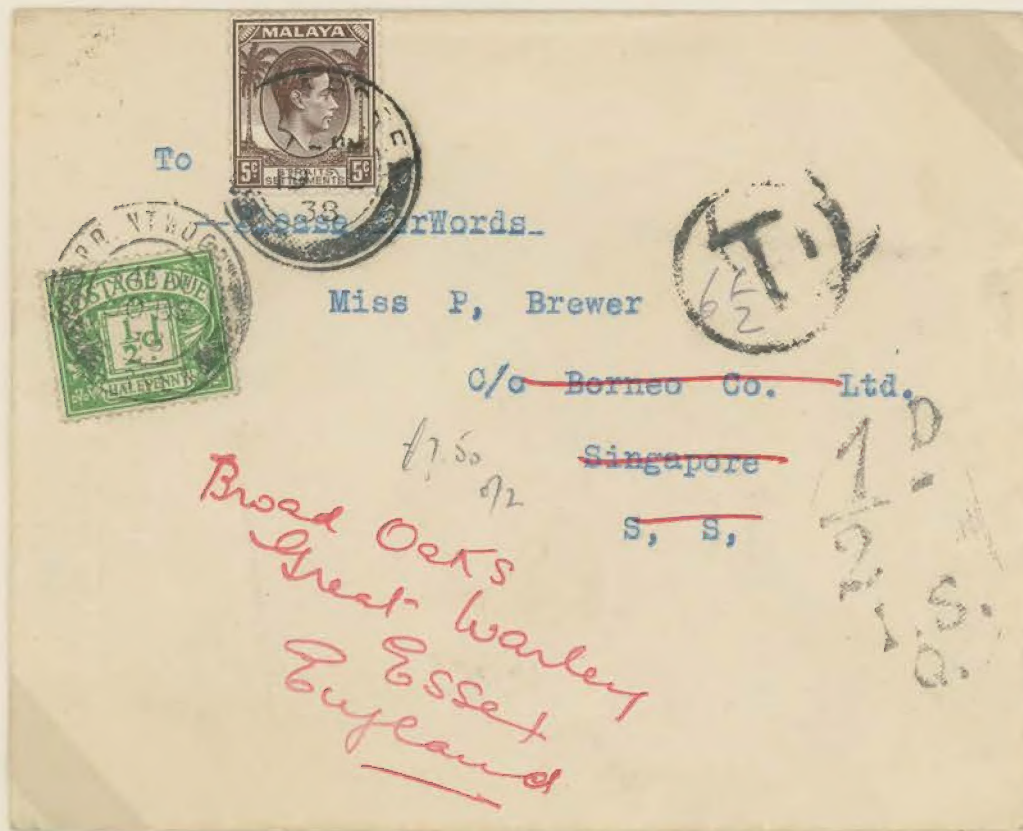 MALAYA
5c STRAITS SETTLEMENTS 5c
38
To
Please ForWords_
POSTAGE DUE
½d.
HALFPENNY
T.
6½
Miss P, Brewer
C/o Borneo Co. Ltd.
Singapore
S, S,
½ D.
I.S.
Q.
Broad Oaks
Great Warley
Essex
England